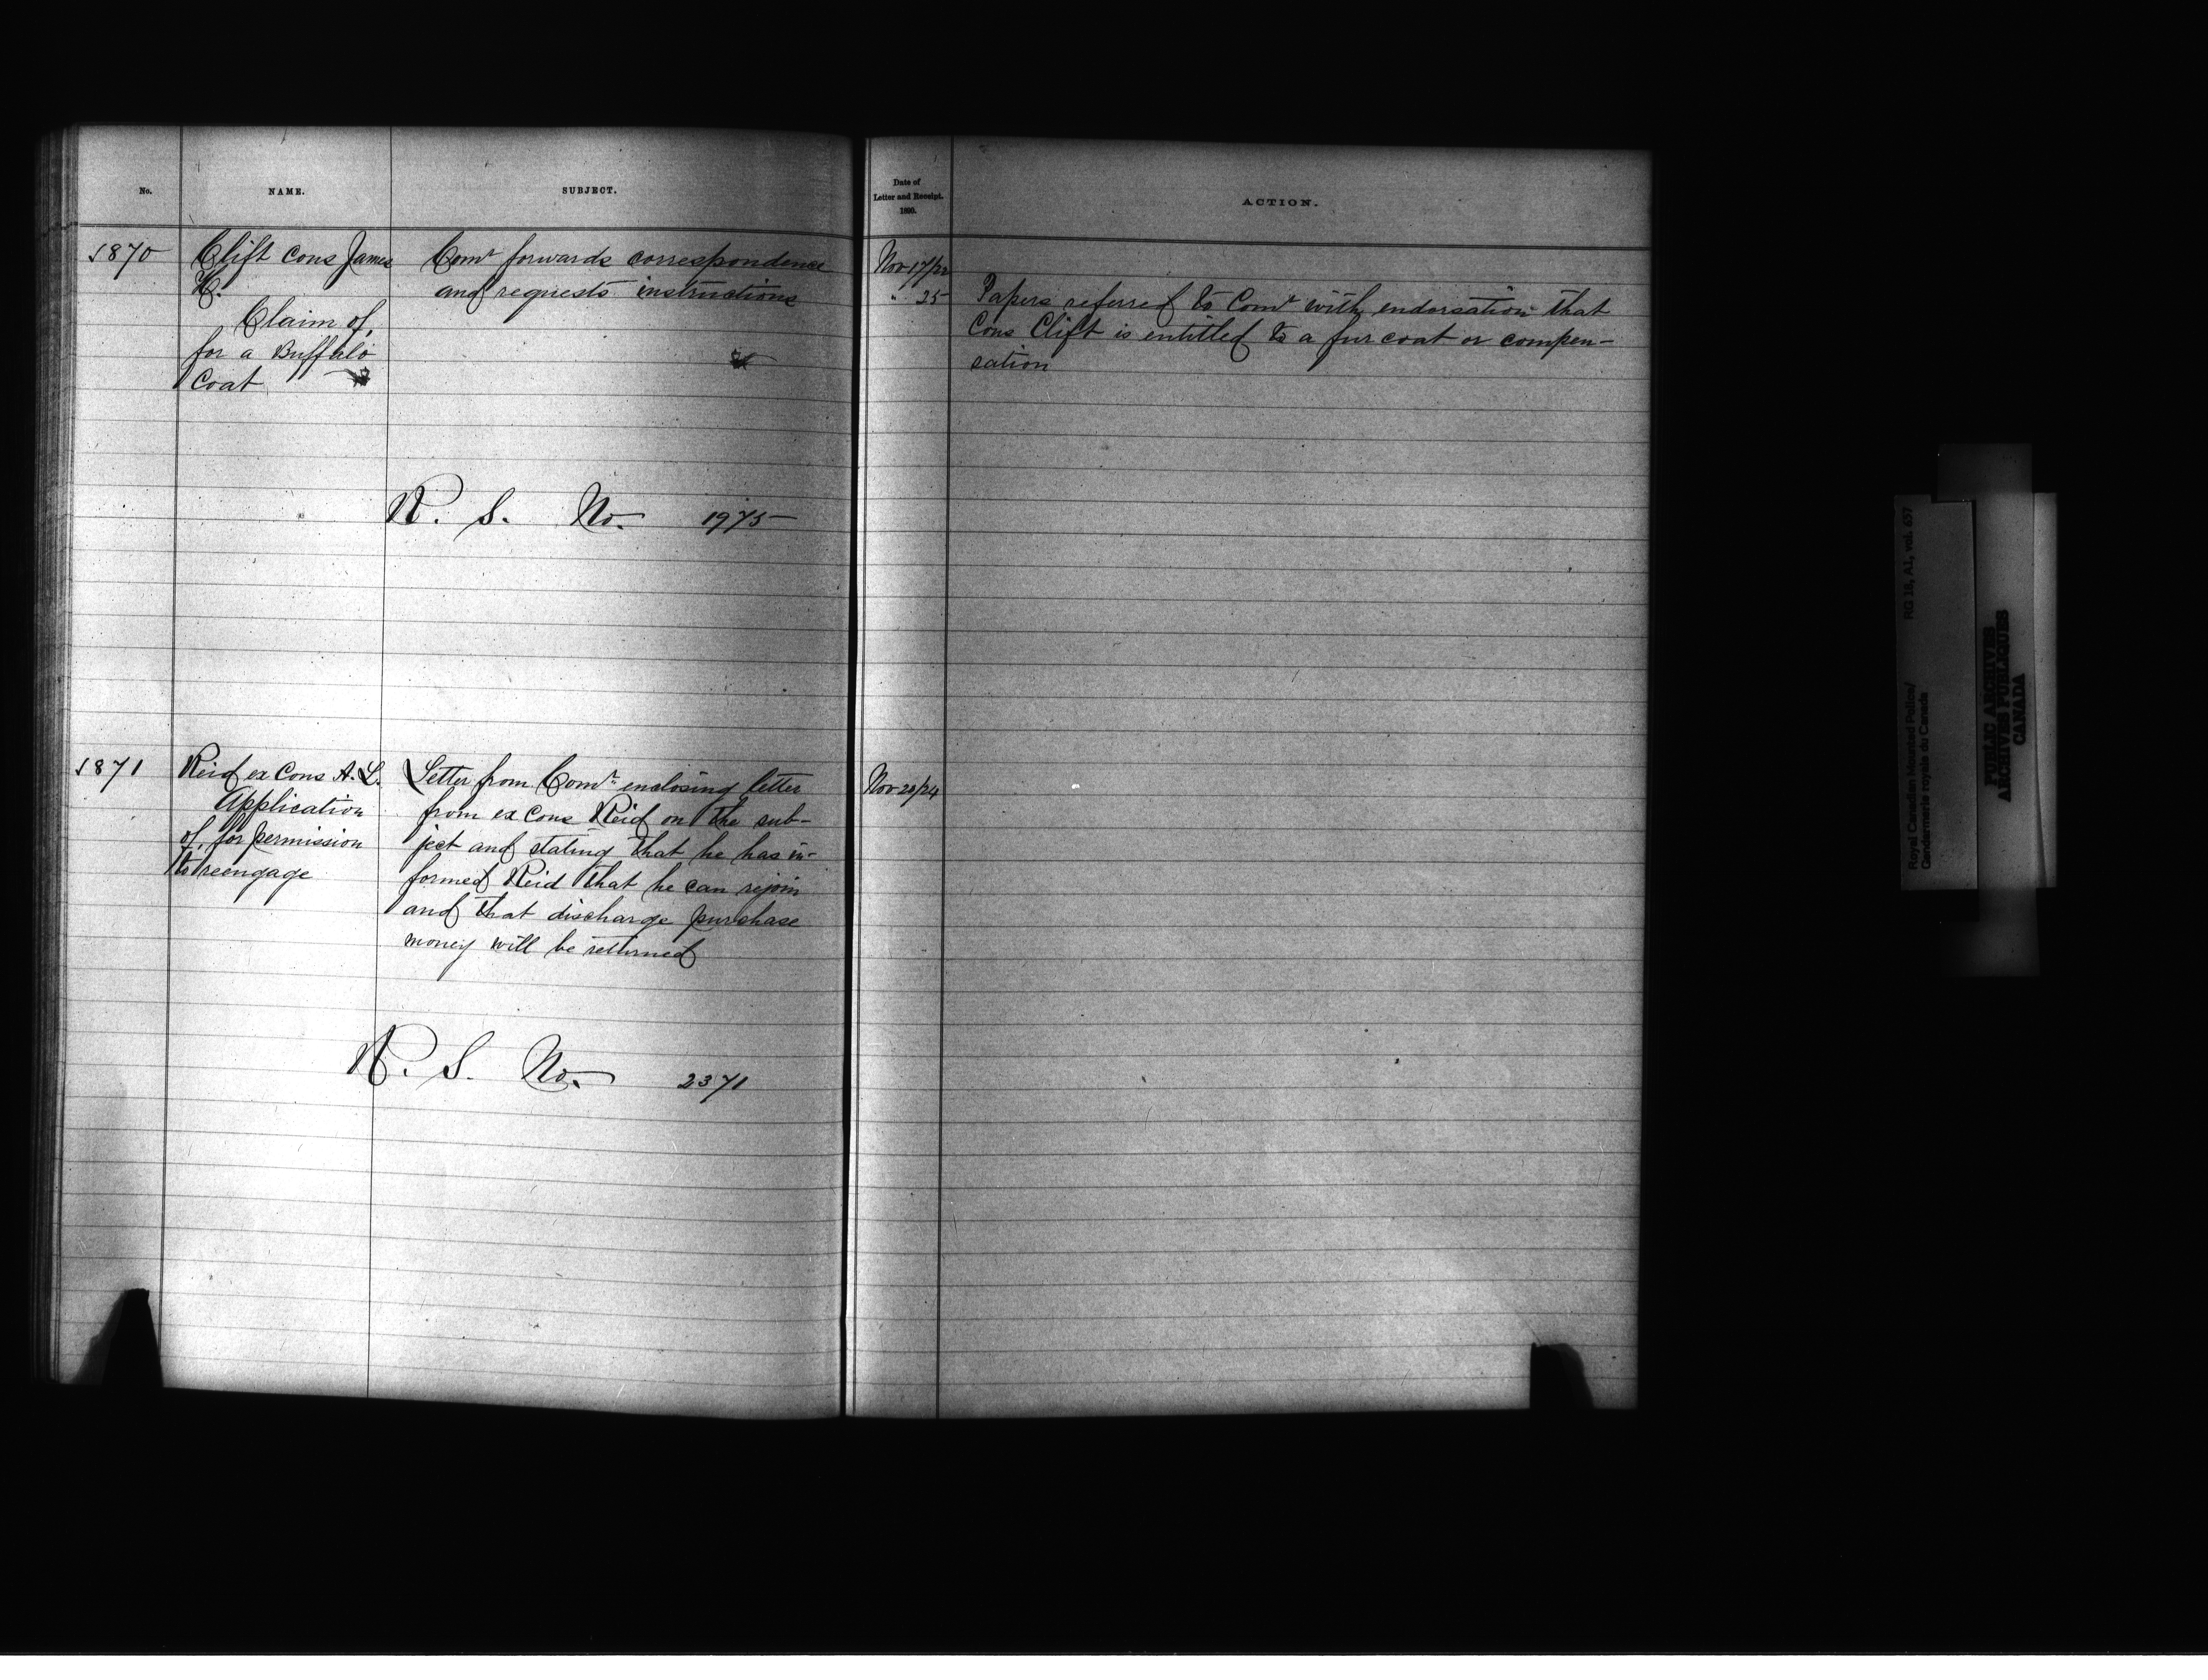 No.
NAME.
SUBJECT.
Date of
Letter and Receipt.
1890.
ACTION.
1870
Clift Cons James
H.
Claim of,
for a Buffalo
Coat
Comr forwards correspondence
and requests instructions
Nov 17/22
" 25
Papers referred to Comr with endorsation that
Cons Clift is entitled to a fur coat or compen-
sation
R. S. No. 1975
1871
Reid ex Cons A. L.
Application
of, for permission
to reengage
Letter from Comr enclosing letter
from ex Cons Reid on the sub-
ject and stating that he has in-
formed Reid that he can rejoin
and that discharge purchase
money will be returned
Nov 20/24
R. S. No. 2371
Royal Canadian Mounted Police/
Gendarmerie royale du Canada
RG 18, A1, vol. 657
PUBLIC ARCHIVES
ARCHIVES PUBLIQUES
CANADA